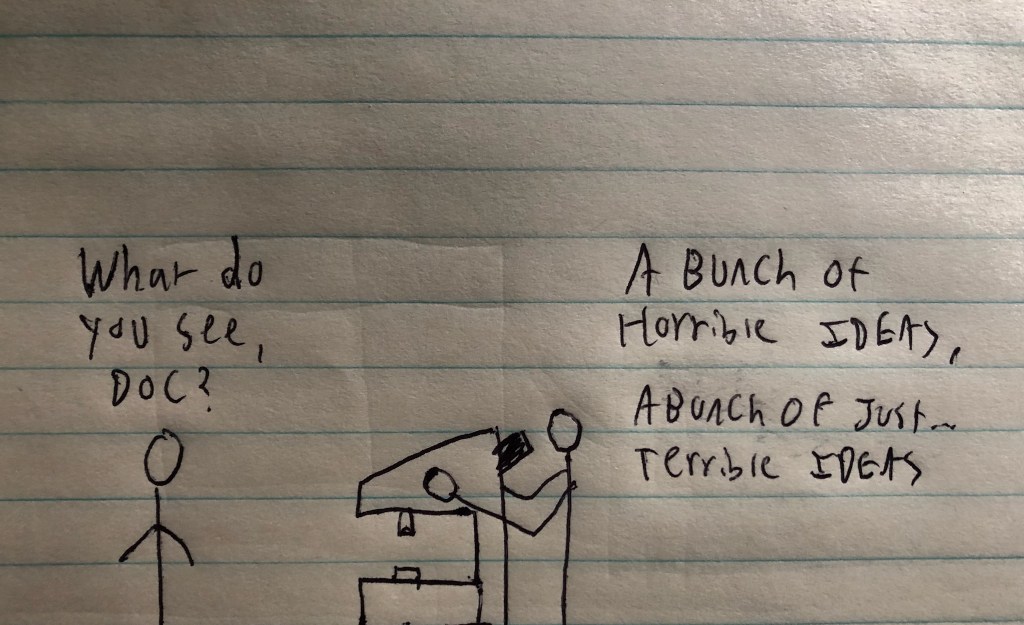 What do
you see,
DOC?
A Bunch of
Horrible IDEAS,
A Bunch OF Just...
Terrible IDEAS